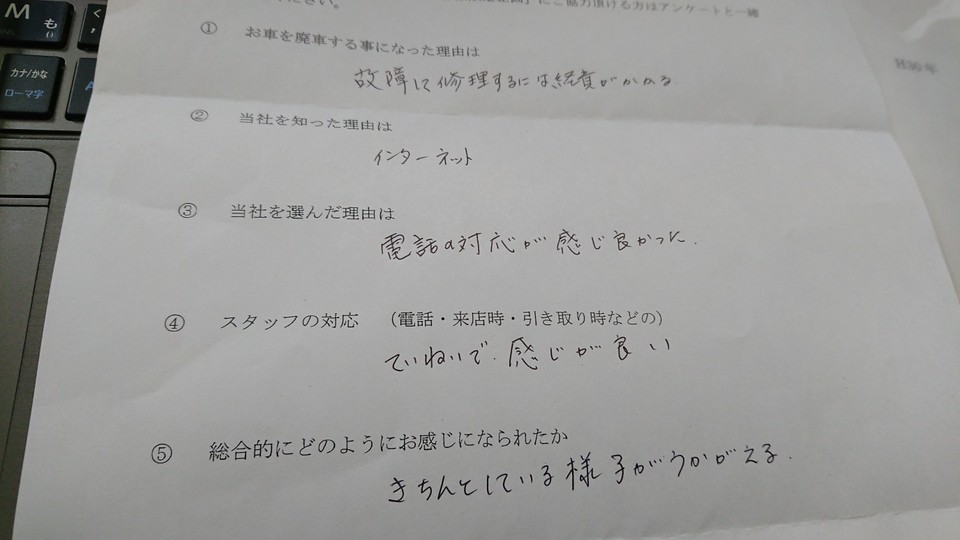 ださい。
にご協力頂ける方はアンケートと一緒
① お車を廃車する事になった理由は
故障して修理するには経費がかかる
② 当社を知った理由は
インターネット
③ 当社を選んだ理由は
電話の対応が感じ良かった.
④ スタッフの対応 (電話・来店時・引き取り時などの)
ていねいで.感じが良い
⑤ 総合的にどのようにお感じになられたか
きちんとしている様子がうかがえる.
H30年
M も
カナ/かな
ローマ字